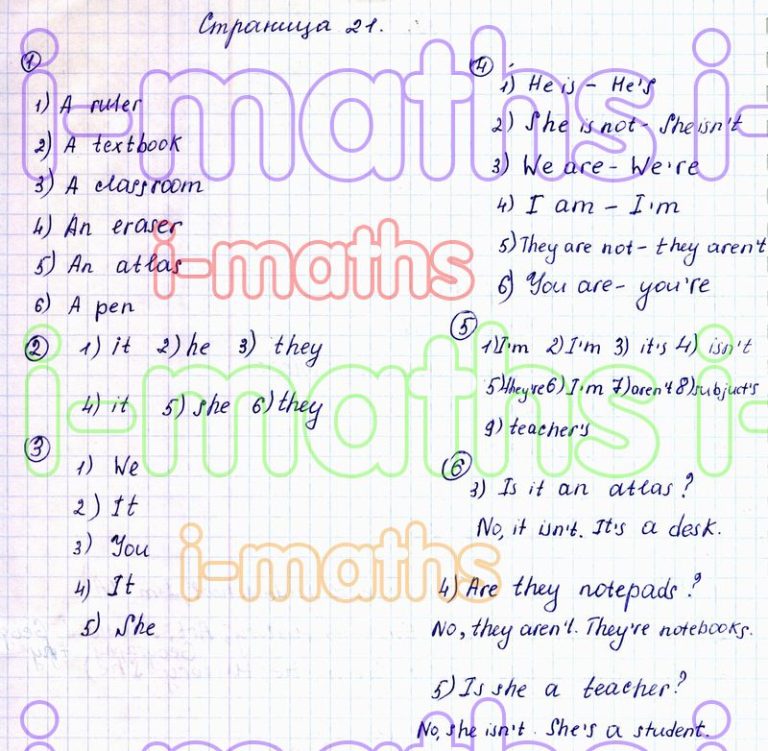 Страница 21.
①
1) A ruler
2) A textbook
3) A classroom
4) An eraser
5) An atlas
6) A pen
② 1) it 2) he 3) they
4) it 5) she 6) they
③
1) We
2) It
3) You
4) It
5) She
④
1) He is - He's
2) She is not - She isn't
3) We are - We're
4) I am - I'm
5) They are not - they aren't
6) You are - you're
⑤
1) I'm 2) I'm 3) it's 4) isn't
5) they're 6) I'm 7) aren't 8) subject's
9) teacher's
⑥
3) Is it an atlas?
No, it isn't. It's a desk.
4) Are they notepads?
No, they aren't. They're notebooks.
5) Is she a teacher?
No, she isn't. She's a student.
i-maths i-
i-maths
i-maths i-
i-maths
i-maths i-